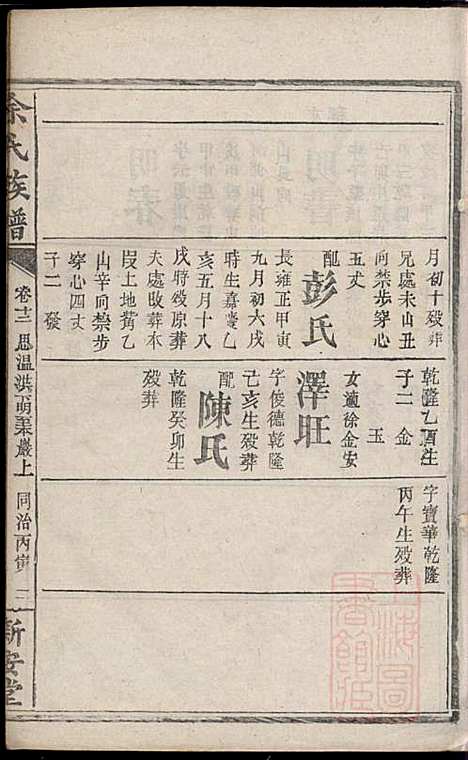 月初十殁葬
兄處未山丑
向禁步穿心
五丈
配彭氏
長雍正甲寅
九月初六戌
時生嘉慶乙
亥五月十八
戌時殁原葬
夫處改葬本
塅土地觜乙
山辛向禁步
穿心四丈
子二 發
乾隆乙酉生
子二 金
玉
女適徐金安
澤旺
字俊德乾隆
己亥生殁葬
配陳氏
乾隆癸卯生
殁葬
字寶華乾隆
丙午生殁葬
余氏族譜
卷十二 思溫洪萌渠嚴上 同治丙寅
新安堂
上海圖
書館藏